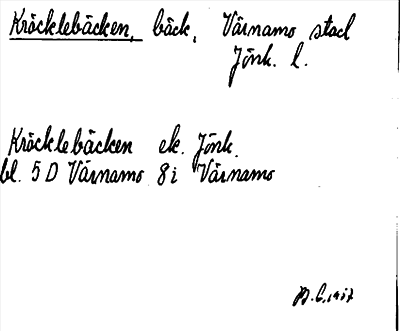 Kröcklebäcken, bäck, Värnamo stad
Jönk. l.
Kröcklebäcken ek. Jönk.
bl. 5 D Värnamo 8i Värnamo